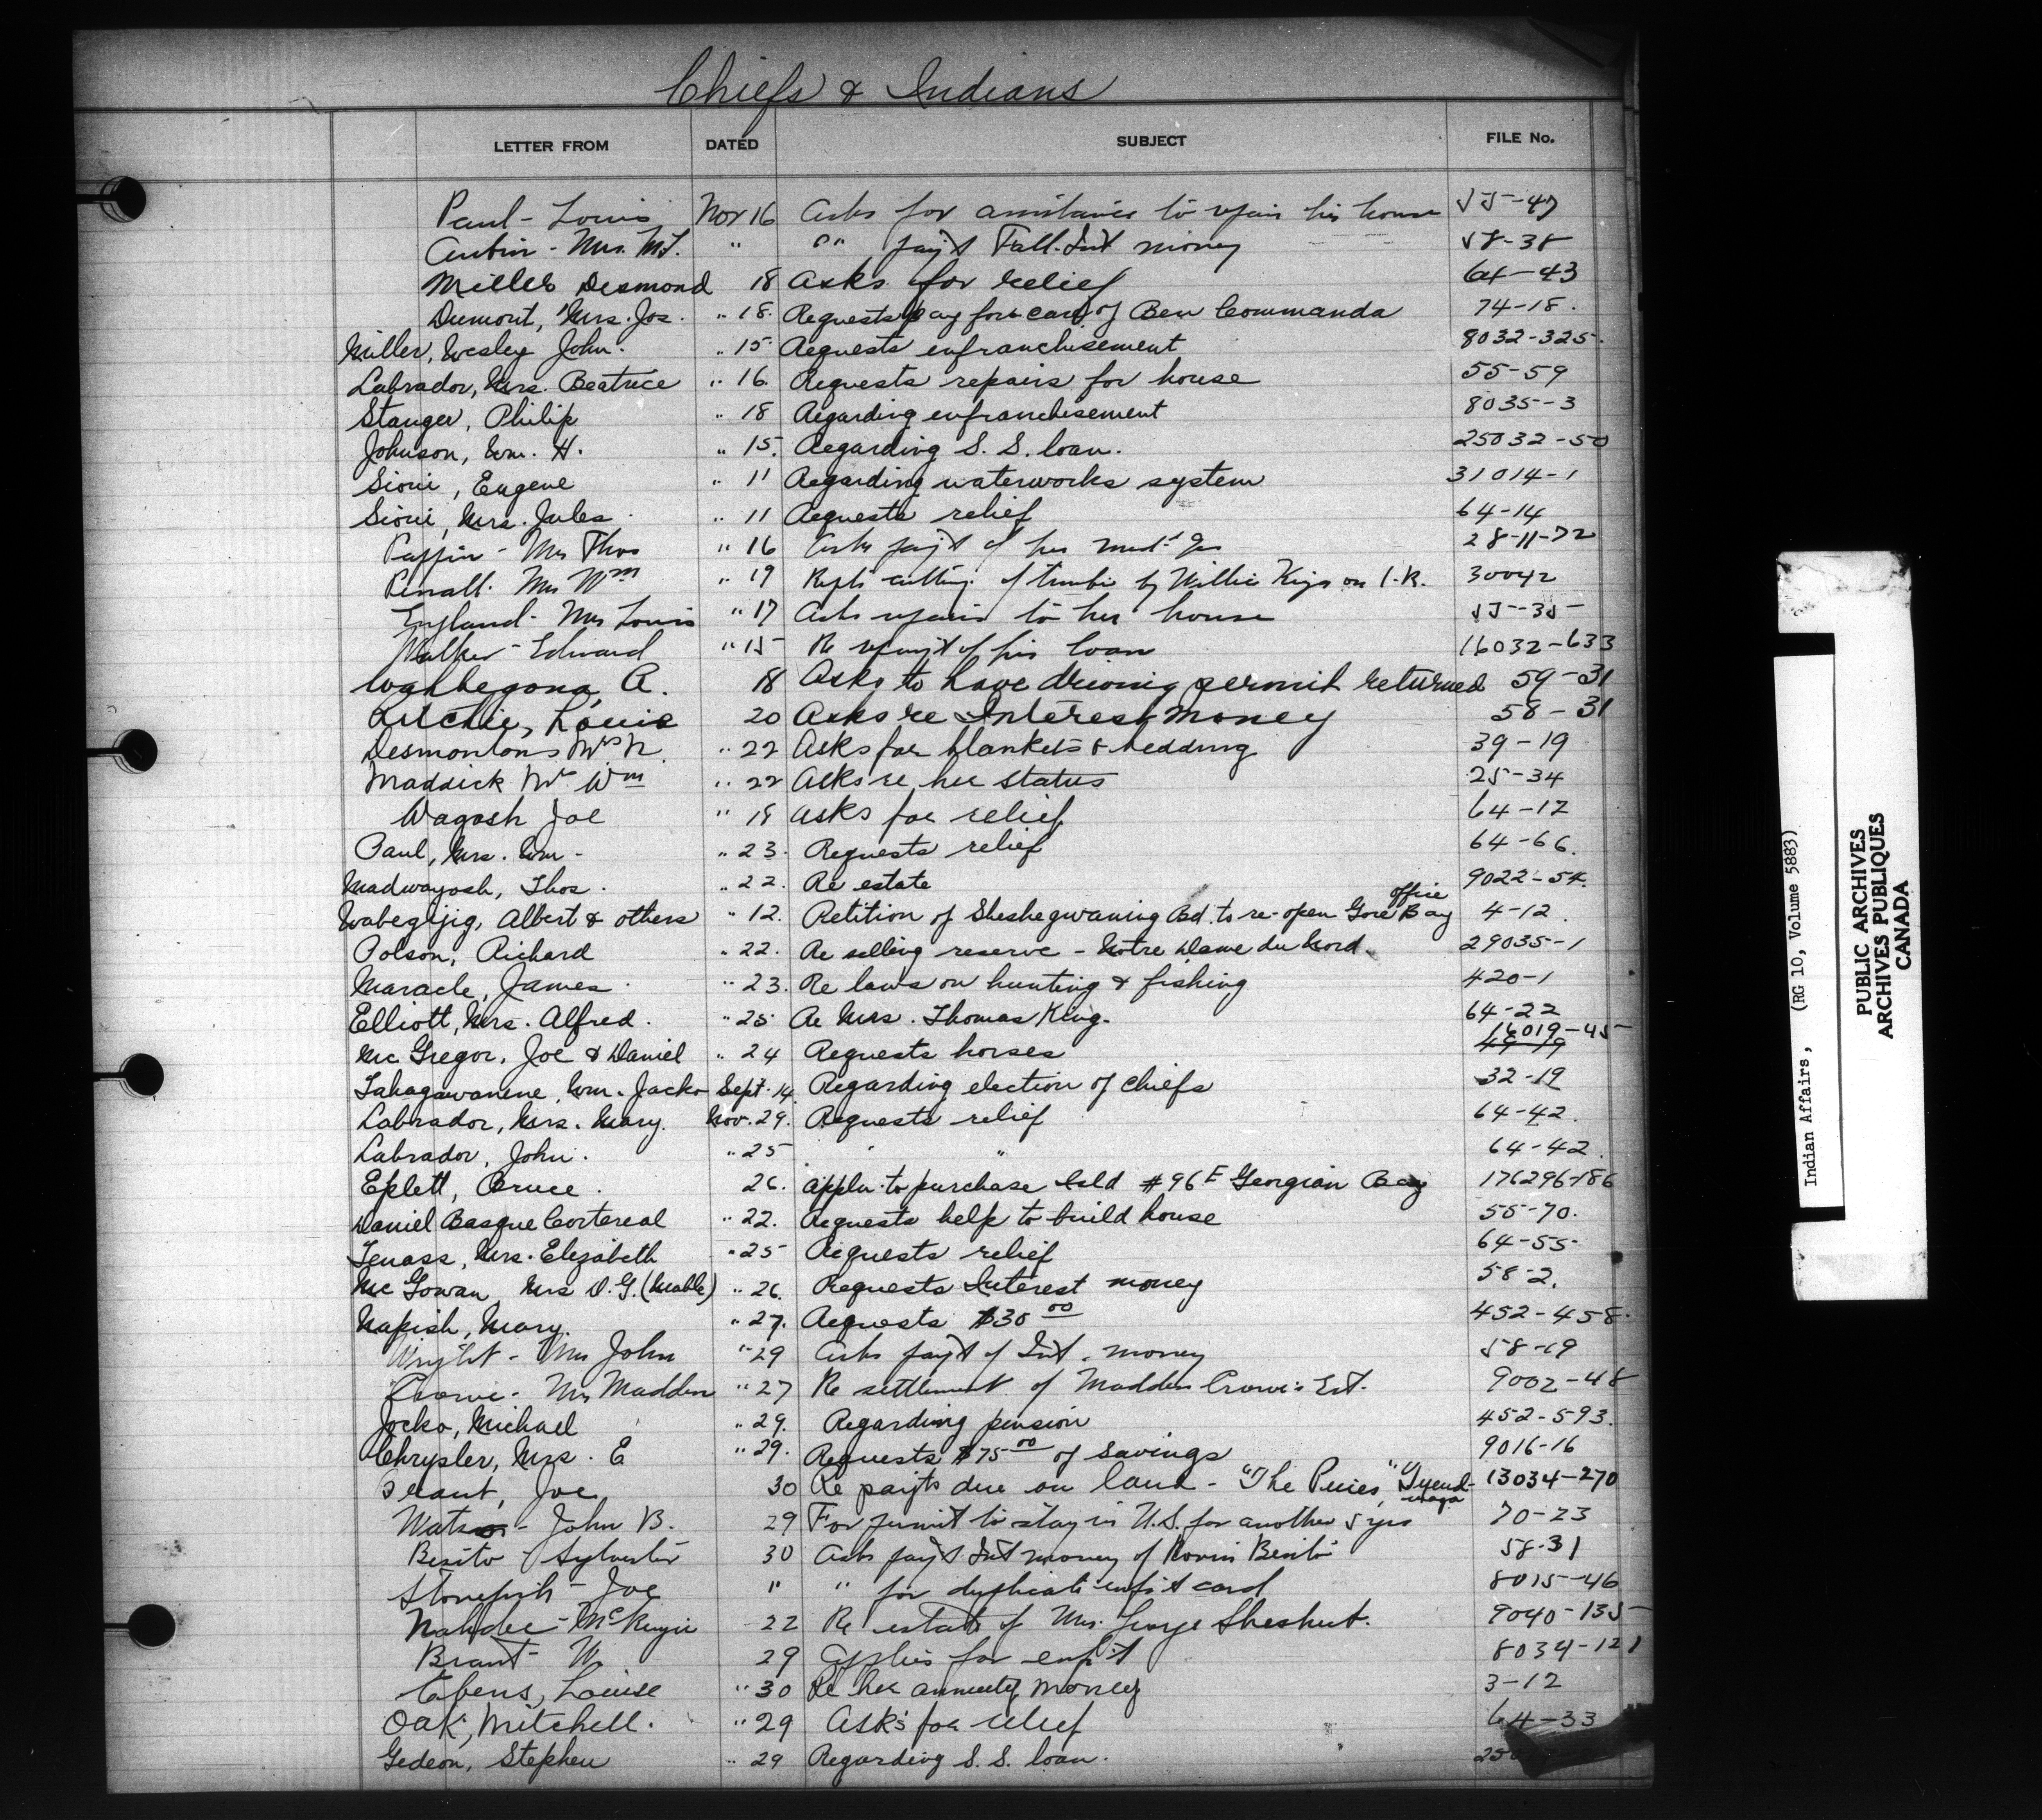 Chiefs & Indians
LETTER FROM DATED SUBJECT FILE No.
Paul - Louis Nov 16 Asks for assistance to repair his house 55-47
Aubin - Mrs. M.J. " " " pay't Fall Int money 58-38
Miller Desmond 18 Asks for relief 64-43
Dumont, Mrs. Jos. " 18. Requests pay for care of Ben Commanda 74-18.
Miller, Wesley John. " 15 Requests enfranchisement 8032-325.
Labrador, Mrs. Beatrice " 16. Requests repairs for house 55-59
Stanger, Philip " 18 Regarding enfranchisement 8035-3
Johnson, Wm. H. " 15. Regarding S. S. loan. 25032-50
Sioui, Eugene " 11 Regarding waterworks system 31014-1
Sioui, Mrs. Jules. " 11 Requests relief 64-14
Mrs Thos " 16 Asks pay't of her 28-11-72
Mrs Wm " 19 Repts cutting of timber by Willie on I.R. 30042
England - Mrs Louis " 17 Asks repairs to her house 55-35
Walker - Edward " 15 Re repay't of his loan 16032-633
Wahbegona, A. 18 Asks to have driving permit returned 59-31
Ritchie, Louie 20 Asks re Interest money 58-31
Desmoulons Mrs N. " 22 Asks for blankets & bedding 39-19
Maddick Mrs Wm " 22 Asks re her status 25-34
Wagosh Joe " 18 asks for relief 64-12
Paul, Mrs. Wm - " 23. Requests relief 64-66.
Madwayosh, Thos. " 22. Re estate 9022-54.
Wabegijig, Albert & others " 12. Petition of Sheshegwaning Bd. to re-open Gore Bay office 4-12.
Polson, Richard " 22. Re selling reserve - Notre Dame du Nord. 29035-1
Maracle, James. " 23. Re laws on hunting & fishing 420-1
Elliott, Mrs. Alfred. " 25 Re Mrs. Thomas King. 64-22
Mc Gregor, Joe & Daniel " 24 Requests horses 16019-45
Tahagawanene, Wm. Jacko Sept. 14. Regarding election of Chiefs 32-19
Labrador, Mrs. Mary. Nov. 29. Requests relief 64-42.
Labrador, John. " 25 " " 64-42.
Eplett, Bruce. 26. appln. to purchase Isld #96E Georgian Bay 176296-186
Daniel Basque Cortereal " 22. Requests help to build house 55-70.
Tenass, Mrs. Elizabeth " 25 Requests relief 64-55
Mc Gowan, Mrs D.G. (Mable) " 26. Requests Interest money 58-2.
Napish, Mary. " 27. Requests $30 00 452-458.
Wright - Mrs John " 29 Asks pay't of Int. money 58-19
Crowe - Mrs Madden " 27 Re settlement of Madden Crowe's Est. 9002-48
Jocko, Michael " 29. Regarding pension 452-593.
Chrysler, Mrs. E " 29. Requests $75 00 of savings 9016-16
Brant, Joe 30 Re payts due on land - "The Pines," Tyendinaga 13034-270
Watson - John B. 29 For permit to stay in U.S. for another 5 yrs 70-23
Sylvester 30 Asks pay't Int money of 58-31
Stonefish - Joe " " for duplicate enf't card 8015-46
Nahdee - McKenzie 22 Re estate of Mrs. George Sheshut. 9040-135
Brant - W 29 Applies for enf't 8034-121
Tabens, Louise " 30 Re her annuity money 3-12
Oak, Mitchell. " 29 Asks for relief 64-33
Gedeon, Stephen " 29 Regarding S. S. loan.
Indian Affairs, (RG 10, Volume 5883)
PUBLIC ARCHIVES
ARCHIVES PUBLIQUES
CANADA